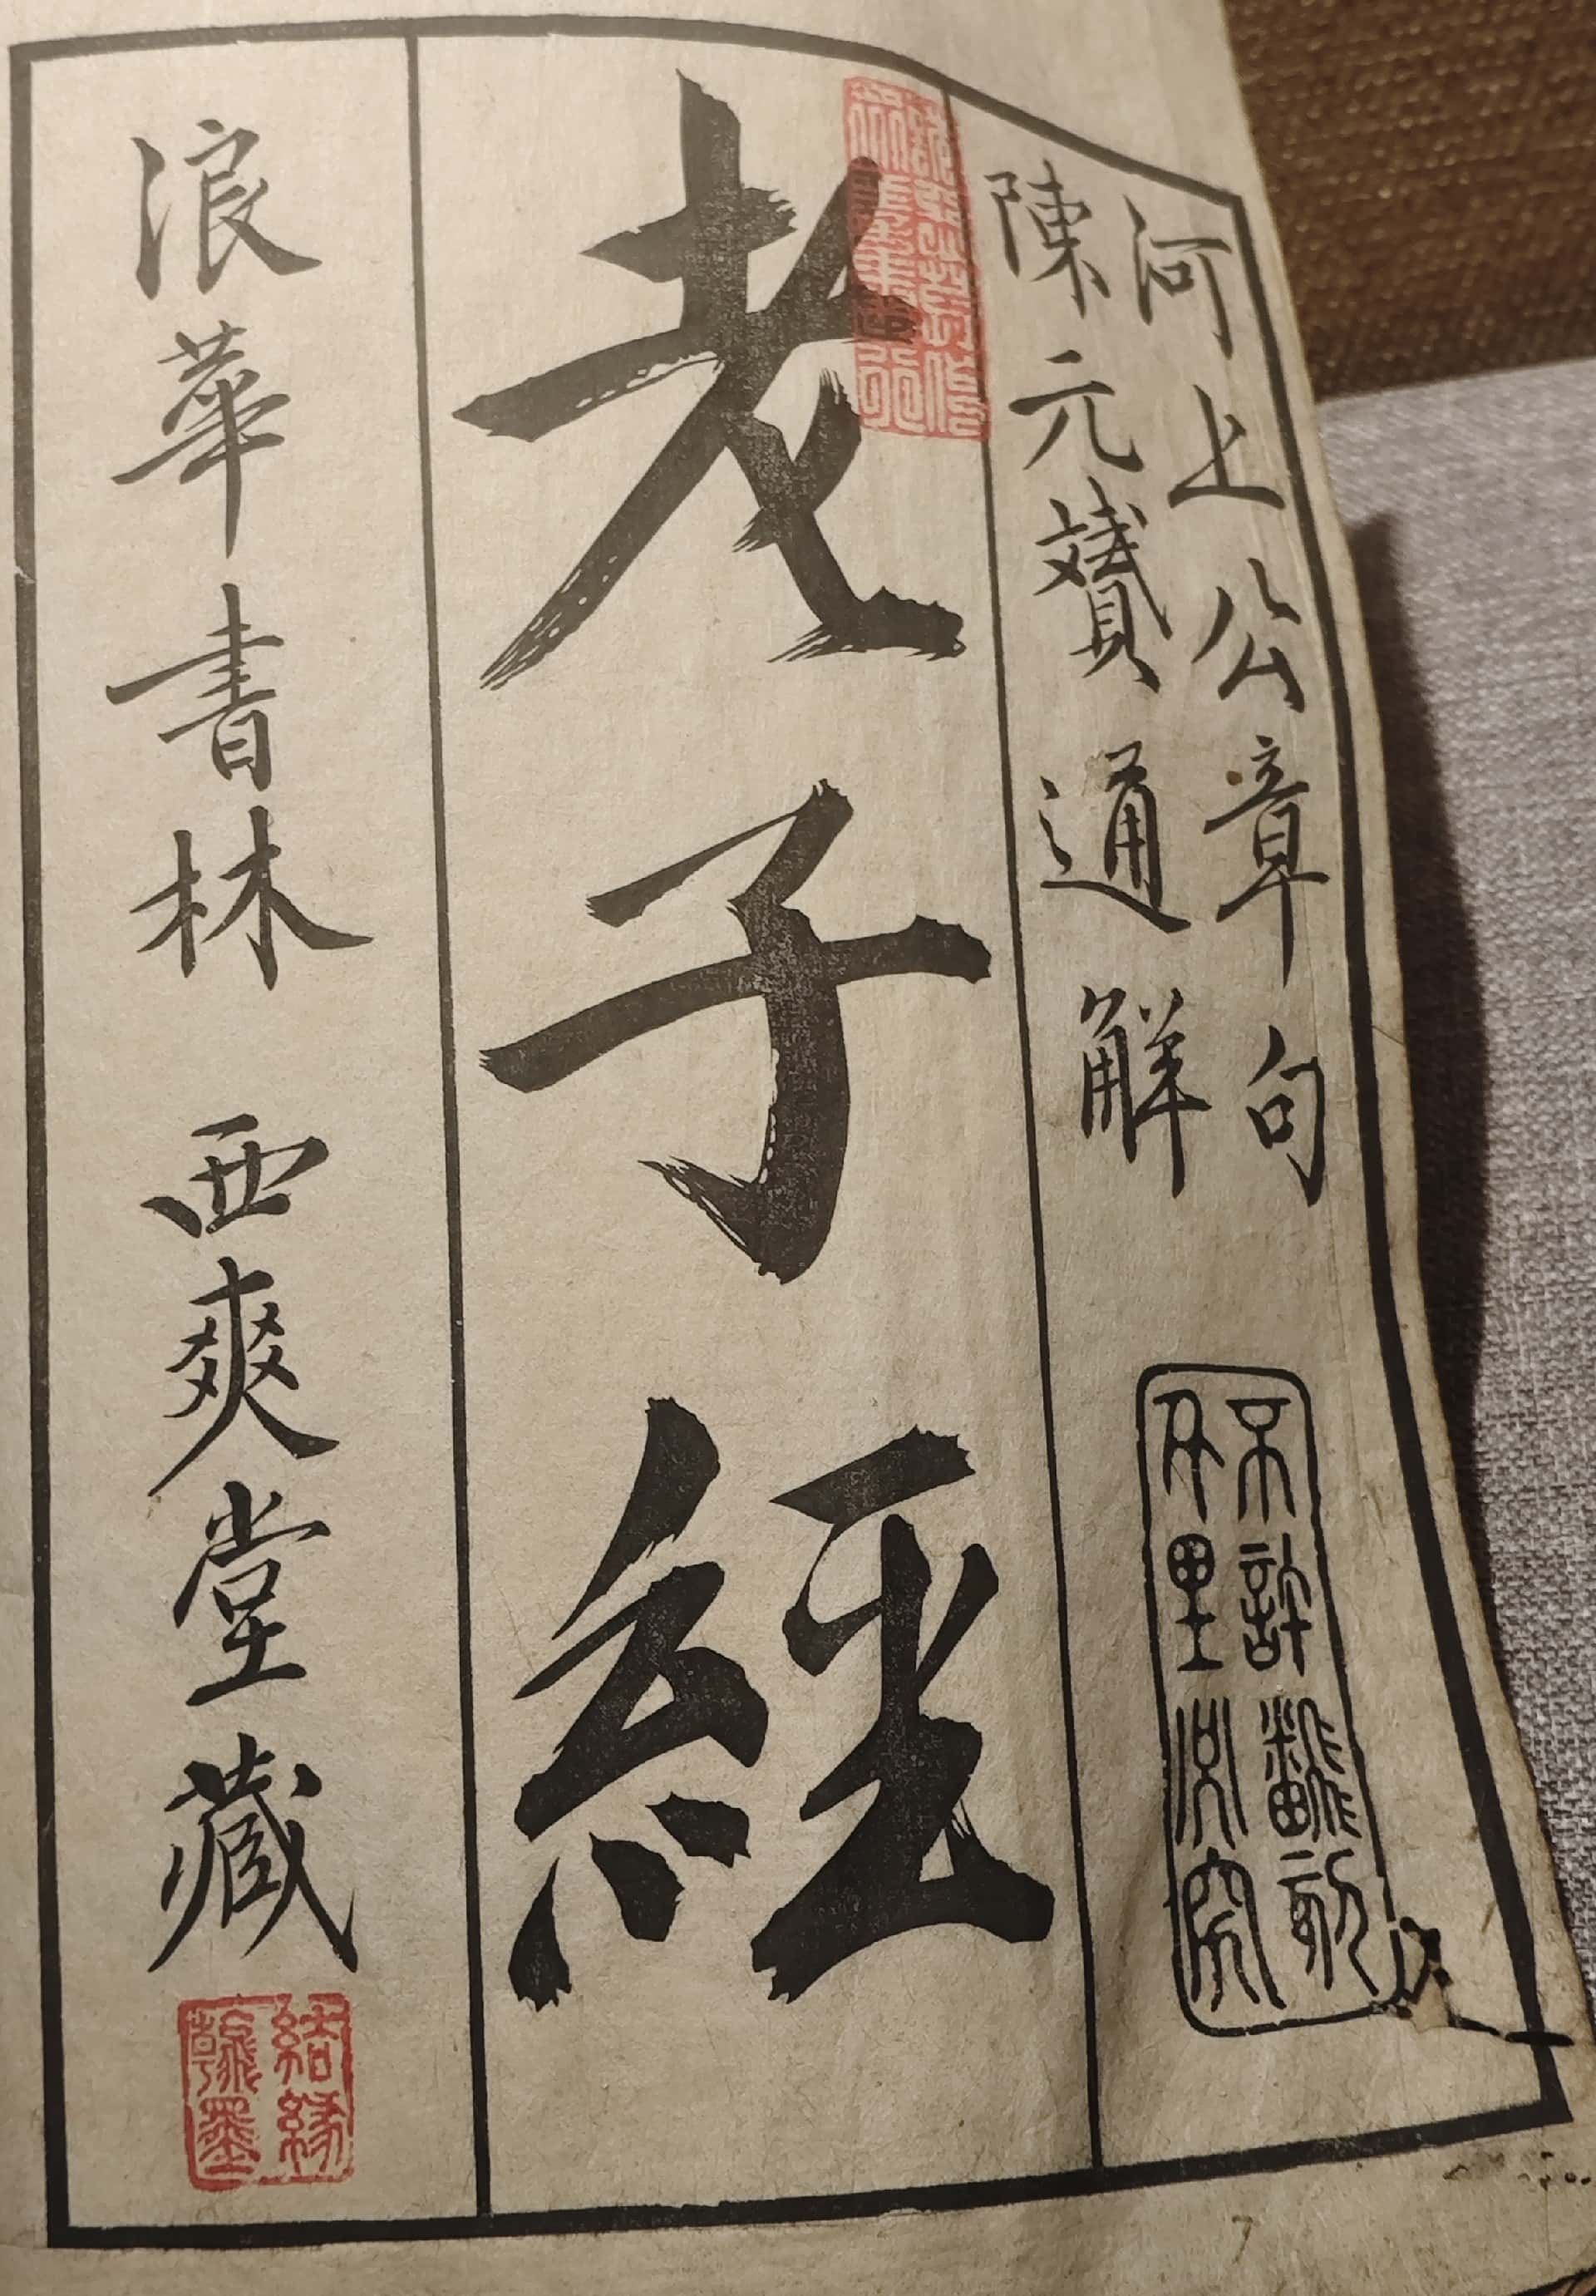 河上公章句
陳元贇通解
不許翻刻
千里必究
老子經
浪華書林 西爽堂藏
結緣
翰墨